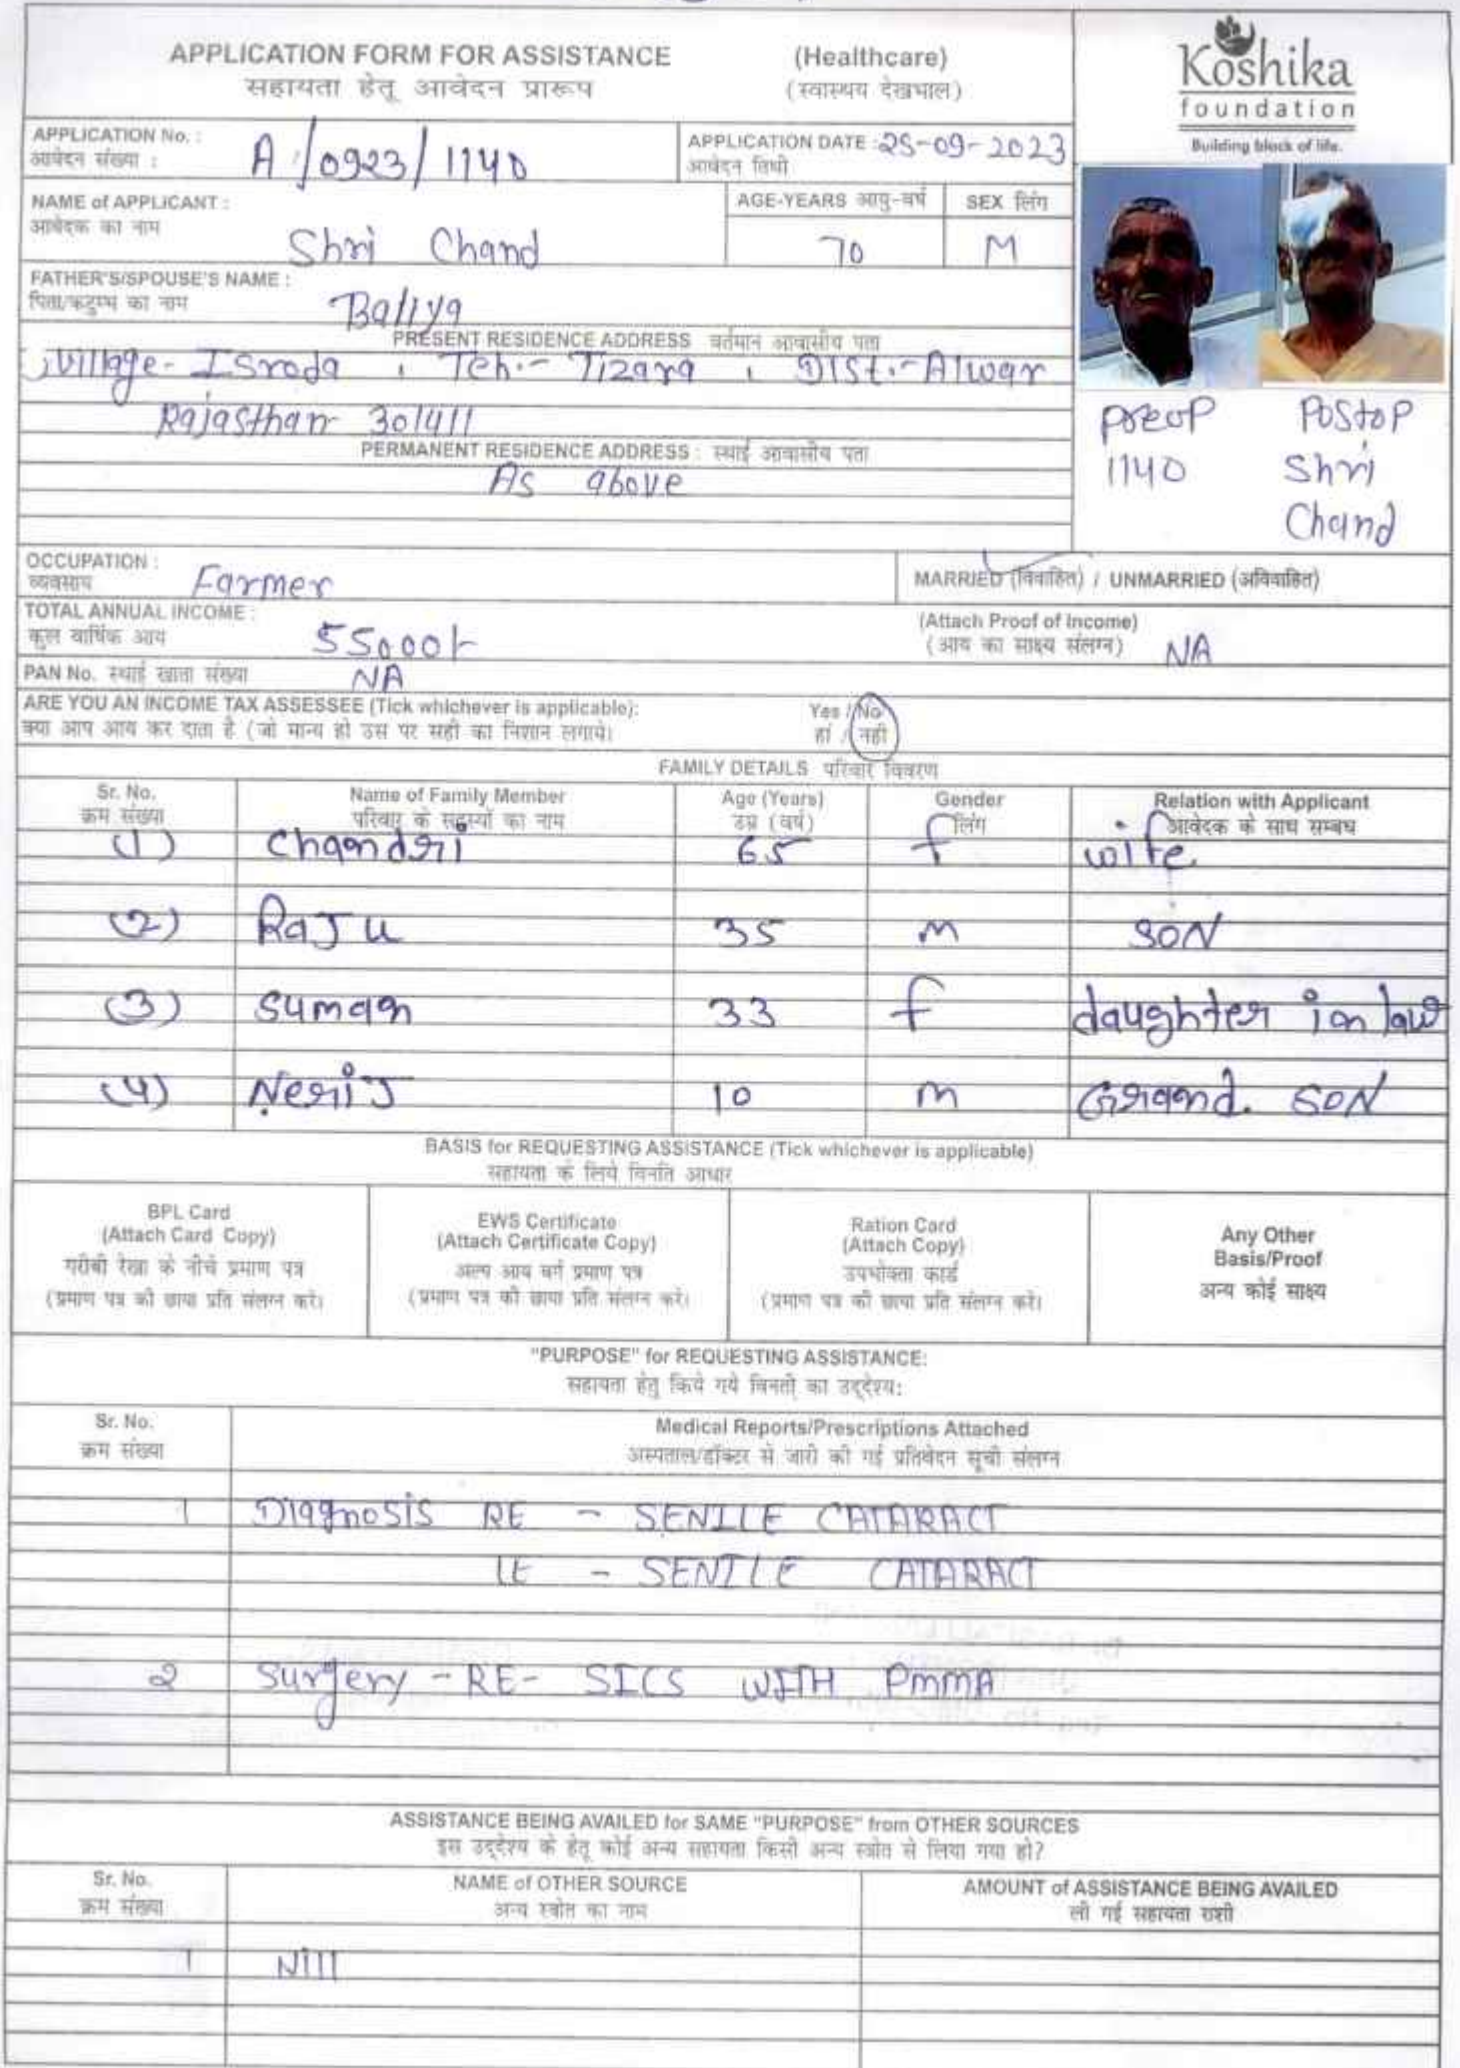 APPLICATION FORM FOR ASSISTANCE (Healthcare)
सहायता हेतू आवेदन प्रारूप (स्वास्थय देखभाल)
Koshika
foundation
Building block of life.
APPLICATION No. : A/0923/1140 APPLICATION DATE : 25-09-2023
आवेदन संख्या : आवेदन तिथी
NAME of APPLICANT : Shri Chand AGE-YEARS आयु-वर्ष SEX लिंग
आवेदक का नाम 70 M
FATHER'S/SPOUSE'S NAME : Baliya
पिता/कटुम्ब का नाम
PRESENT RESIDENCE ADDRESS वर्तमान आवासीय पता
Village- Isroda , Teh.- Tizara , Dist.- Alwar
Rajasthan- 301411
PERMANENT RESIDENCE ADDRESS : स्थाई आवासीय पता
As above
preop Postop
1140 Shri
Chand
OCCUPATION : Farmer MARRIED (विवाहित) / UNMARRIED (अविवाहित)
व्यवसाय
TOTAL ANNUAL INCOME : 55000/- (Attach Proof of Income) NA
कुल वार्षिक आय (आय का साक्ष्य संलग्न)
PAN No. स्थाई खाता संख्या NA
ARE YOU AN INCOME TAX ASSESSEE (Tick whichever is applicable): Yes / No
क्या आप आय कर दाता है (जो मान्य हो उस पर सही का निशान लगाये। हां / नही
FAMILY DETAILS परिवार विवरण
Sr. No. Name of Family Member Age (Years) Gender Relation with Applicant
क्रम संख्या परिवार के सदस्यों का नाम उम्र (वर्ष) लिंग आवेदक के साथ सम्बध
(1) Chandri 65 f wife
(2) RaJu 35 m SON
(3) Suman 33 f daughter in law
(4) NeriJ 10 m Grand. SON
BASIS for REQUESTING ASSISTANCE (Tick whichever is applicable)
सहायता के लिये विनति आधार
BPL Card
(Attach Card Copy)
गरीबी रेखा के नीचे प्रमाण पत्र
(प्रमाण पत्र की छाया प्रति संलग्न करे।
EWS Certificate
(Attach Certificate Copy)
अल्प आय वर्ग प्रमाण पत्र
(प्रमाण पत्र की छाया प्रति संलग्न करे।
Ration Card
(Attach Copy)
उपभोक्ता कार्ड
(प्रमाण पत्र की छाया प्रति संलग्न करे।
Any Other
Basis/Proof
अन्य कोई साक्ष्य
"PURPOSE" for REQUESTING ASSISTANCE:
सहायता हेतु किये गये विनती का उद्देश्य:
Sr. No. Medical Reports/Prescriptions Attached
क्रम संख्या अस्पताल/डॉक्टर से जारी की गई प्रतिवेदन सूची संलग्न
1 Diagnosis RE - SENILE CATARACT
LE - SENILE CATARACT
2 Surgery - RE- SICS WITH PmmA
ASSISTANCE BEING AVAILED for SAME "PURPOSE" from OTHER SOURCES
इस उद्देश्य के हेतू कोई अन्य सहायता किसी अन्य स्त्रोत से लिया गया हो?
Sr. No. NAME of OTHER SOURCE AMOUNT of ASSISTANCE BEING AVAILED
क्रम संख्या अन्य स्त्रोत का नाम ली गई सहायता राशी
1 Nill